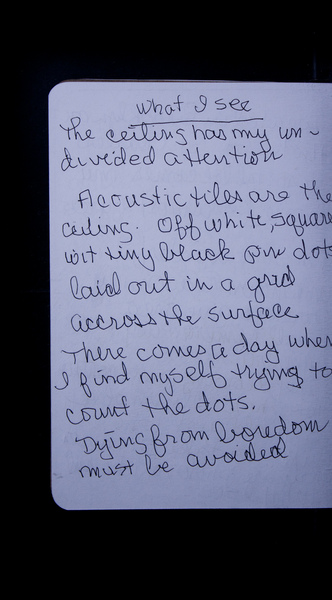 what I see
The ceiling has my un-
divided attention
Acoustic tiles are the
ceiling. Off white, square
wit tiny black pin dots
laid out in a grid
accross the surface
There comes a day when
I find myself trying to
count the dots.
Dying from boredom
must be avoided